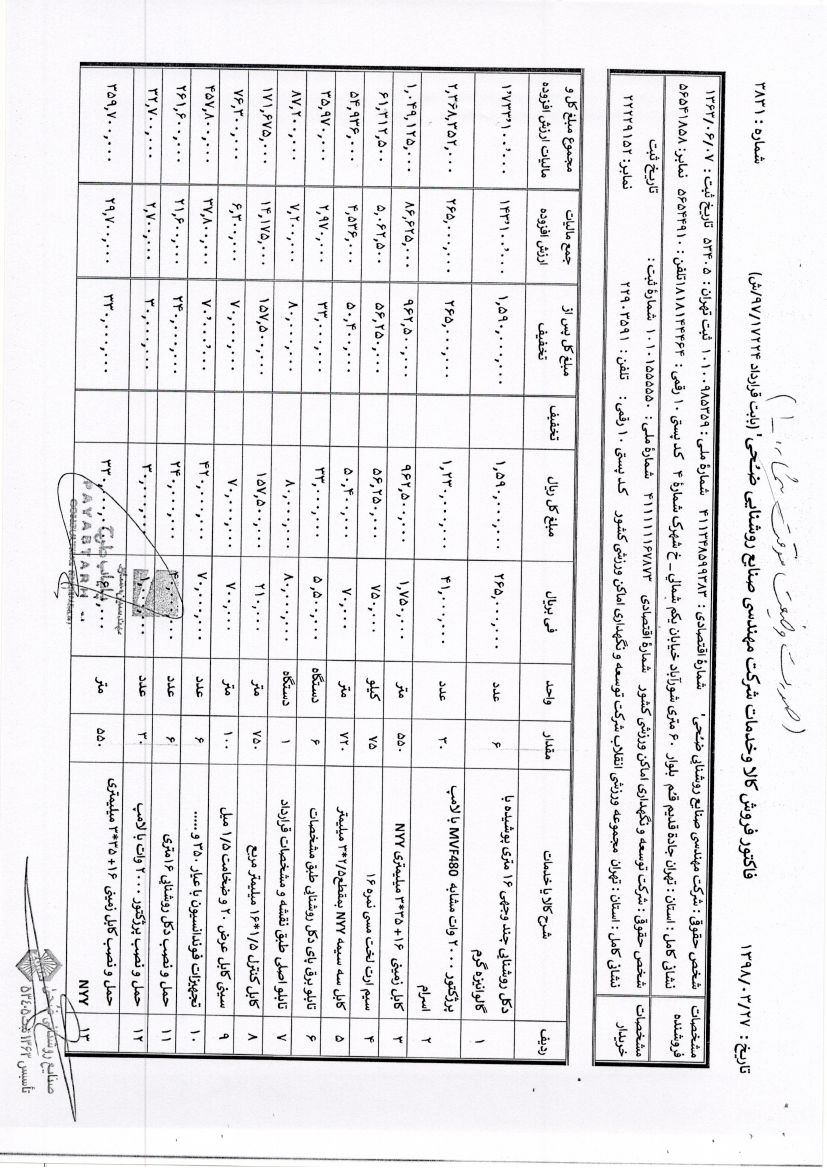 شماره : ۳۸۳۱
فاکتور فروش کالا وخدمات شرکت مهندسی صنایع روشنایی ضُحی' (بابت قرارداد ۹۷/۱۷۲۲۴/ش)
تاریخ : ۱۳۹۸/۰۳/۲۷
(صورت وضعیت موقت شماره ۱)
مشخصات فروشنده
شخص حقوقی : شرکت مهندسی صنایع روشنایی ضُحی' شمارهٔ اقتصادی : ۴۱۱۳۴۸۵۹۹۳۸۳ شمارهٔ ملی : ۱۰۱۰۰۹۸۵۳۵۹ ثبت تهران : ۵۳۴۰۵ تاریخ ثبت : ۱۳۶۳/۰۶/۰۷
نشانی کامل : استان : تهران جادهٔ قدیم قم بلوار ۶۰ متری شورآباد خیابان یکم شمالی – خ شهرک شمارهٔ ۴ کد پستی ۱۰ رقمی : ۱۸۱۸۱۴۴۴۶۴ تلفن : ۵۶۵۴۴۹۱۰ نمابر: ۵۶۵۴۱۸۵۸
مشخصات خریدار
شخص حقوقی : شرکت توسعه و نگهداری اماکن ورزشی کشور شمارهٔ اقتصادی ۴۱۱۱۱۱۱۶۷۸۷۳ شمارهٔ ملی : ۱۰۱۰۱۵۵۵۵۵۰ شمارهٔ ثبت : تاریخ ثبت
نشانی کامل : استان : تهران مجموعه ورزشی انقلاب شرکت توسعه و نگهداری اماکن ورزشی کشور کد پستی ۱۰ رقمی : تلفن : ۲۲۹۰۳۵۹۱ نمابر: ۲۲۲۲۹۱۵۲
ردیف شرح کالا یا خدمات مقدار واحد فی بریال مبلغ کل ریال تخفیف مبلغ کل پس از تخفیف جمع مالیات ارزش افزوده مجموع مبلغ کل و مالیات ارزش افزوده
۱ دکل روشنایی چند وجهی ۱۶ متری پوشیده با گالوانیزه گرم ۶ عدد ۲۶۵,۰۰۰,۰۰۰ ۱,۵۹۰,۰۰۰,۰۰۰ ۱,۵۹۰,۰۰۰,۰۰۰ ۱۴۳٬۱۰۰٬۰۰۰ ۱٬۷۳۳٬۱۰۰٬۰۰۰
۲ پرژکتور ۲۰۰۰ وات مشابه MVF480 با لامپ اسرام ۳۰ عدد ۴۱,۰۰۰,۰۰۰ ۱,۲۳۰,۰۰۰,۰۰۰ ۲۶۵,۰۰۰,۰۰۰ ۲۶۵,۰۰۰,۰۰۰ ۲,۳۶۸,۳۵۲,۰۰۰
۳ کابل زمینی ۱۶ + ۳۵*۳ میلیمتری NYY ۵۵۰ متر ۱,۷۵۰,۰۰۰ ۹۶۲,۵۰۰,۰۰۰ ۹۶۲,۵۰۰,۰۰۰ ۸۶,۶۲۵,۰۰۰ ۱,۰۴۹,۱۲۵,۰۰۰
۴ سیم ارت لخت مسی نمره ۱۶ ۷۵ کیلو ۷۵۰,۰۰۰ ۵۶,۲۵۰,۰۰۰ ۵۶,۲۵۰,۰۰۰ ۵,۰۶۲,۵۰۰ ۶۱,۳۱۲,۵۰۰
۵ کابل سه سیمه NYY بمقطع۲/۵*۳ میلیمتر ۷۲۰ متر ۷۰,۰۰۰ ۵۰,۴۰۰,۰۰۰ ۵۰,۴۰۰,۰۰۰ ۴,۵۳۶,۰۰۰ ۵۴,۹۳۶,۰۰۰
۶ تابلو برق پای دکل روشنایی طبق مشخصات ۶ دستگاه ۵,۵۰۰,۰۰۰ ۳۳,۰۰۰,۰۰۰ ۳۳,۰۰۰,۰۰۰ ۲,۹۷۰,۰۰۰ ۳۵,۹۷۰,۰۰۰
۷ تابلو اصلی طبق نقشه و مشخصات قرارداد ۱ دستگاه ۸۰,۰۰۰,۰۰۰ ۸۰,۰۰۰,۰۰۰ ۸۰,۰۰۰,۰۰۰ ۷,۲۰۰,۰۰۰ ۸۷,۲۰۰,۰۰۰
۸ کابل کنترل ۱/۵*۱۶ میلیمتر مربع ۷۵۰ متر ۲۱۰,۰۰۰ ۱۵۷,۵۰۰,۰۰۰ ۱۵۷,۵۰۰,۰۰۰ ۱۴,۱۷۵,۰۰۰ ۱۷۱,۶۷۵,۰۰۰
۹ سینی کابل عرض ۲۰ و ضخامت ۱/۵ میل ۱۰۰ متر ۷۰۰,۰۰۰ ۷۰,۰۰۰,۰۰۰ ۷۰,۰۰۰,۰۰۰ ۶,۳۰۰,۰۰۰ ۷۶,۳۰۰,۰۰۰
۱۰ تجهیزات فوندانسیون با عیار ۳۵۰ و..... ۶ عدد ۷۰,۰۰۰,۰۰۰ ۴۲۰,۰۰۰,۰۰۰ ۷۰٬۰۰۰٬۰۰۰ ۳۷,۸۰۰,۰۰۰ ۴۵۷,۸۰۰,۰۰۰
۱۱ حمل و نصب دکل روشنایی ۱۶متری ۶ عدد ۴۰,۰۰۰,۰۰۰ ۲۴۰,۰۰۰,۰۰۰ ۲۴۰,۰۰۰,۰۰۰ ۲۱,۶۰۰,۰۰۰ ۲۶۱,۶۰۰,۰۰۰
۱۲ حمل و نصب پرژکتور ۲۰۰۰ وات با لامپ ۳۰ عدد ۳۰,۰۰۰,۰۰۰ ۳۰,۰۰۰,۰۰۰ ۲,۷۰۰,۰۰۰ ۳۲,۷۰۰,۰۰۰
۱۳ حمل و نصب کابل زمینی ۱۶ + ۳۵*۳ میلیمتری NYY ۵۵۰ متر ۳۳۰,۰۰۰,۰۰۰ ۳۳۰,۰۰۰,۰۰۰ ۲۹,۷۰۰,۰۰۰ ۳۵۹,۷۰۰,۰۰۰
PAYABTARH
صنایع روشنایی ضحی
تأسیس ۱۳۶۳ ثبت ۵۳۴۰۵